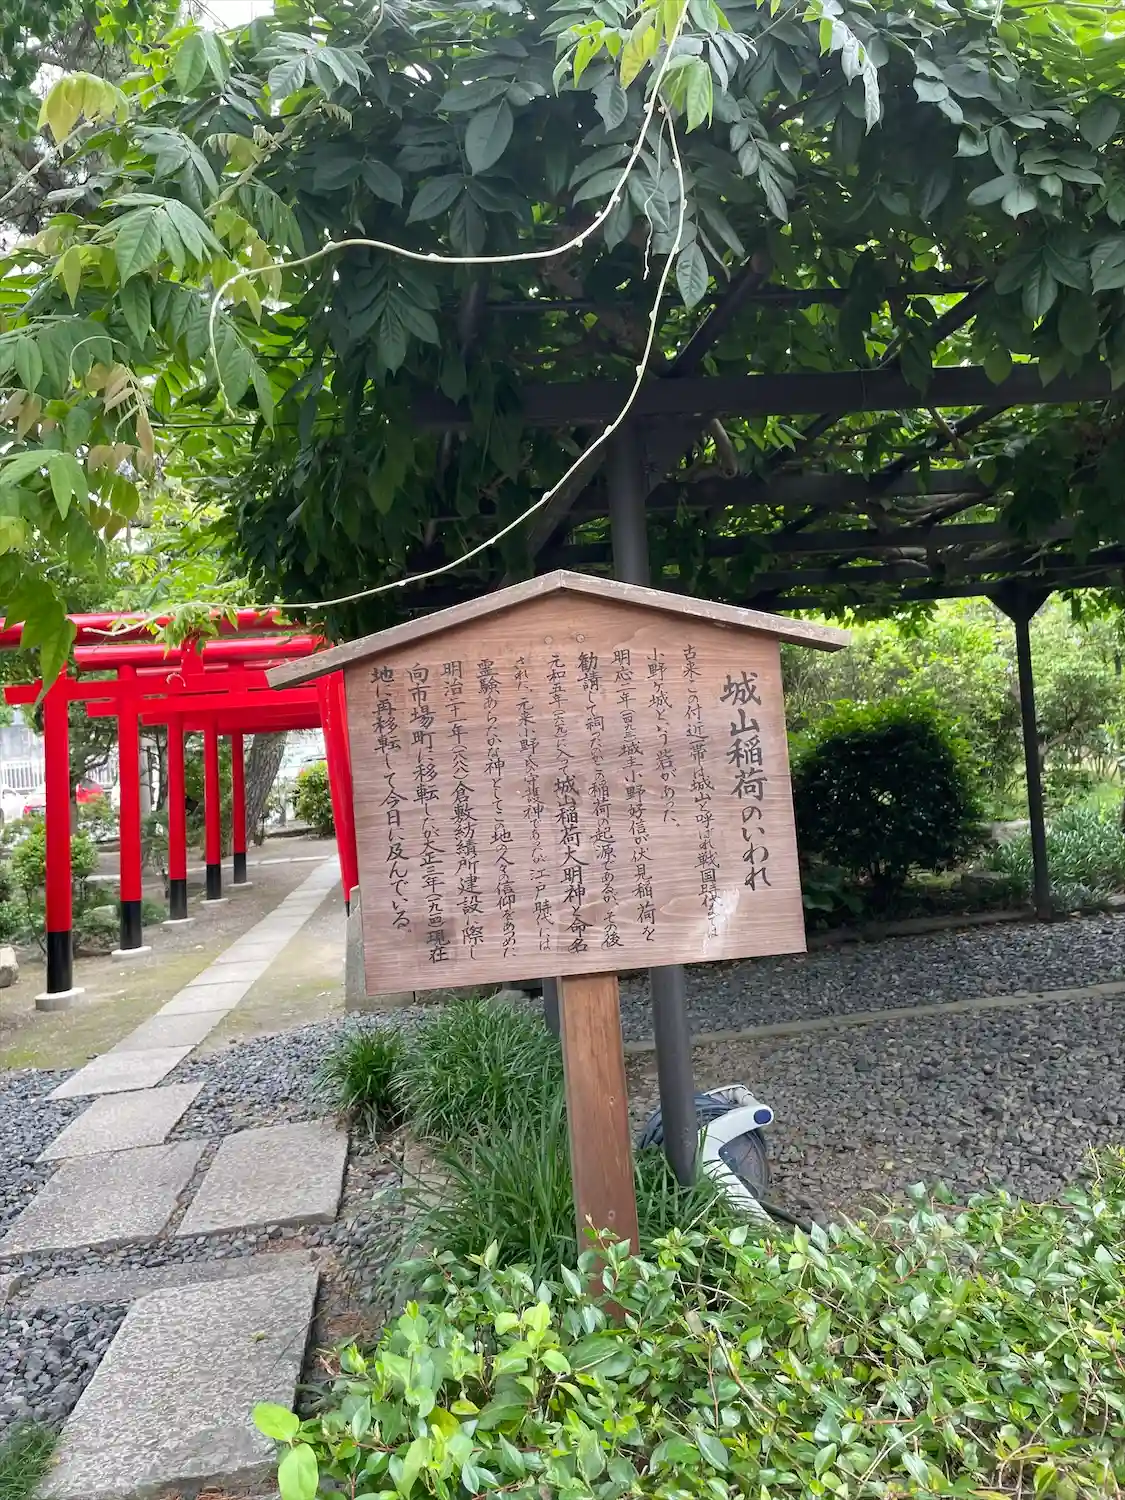 城山稲荷のいわれ
古来この付近一帯は城山と呼ばれ戦国時代には
小野ヶ城という砦があった。
明応二年(一四九三)城主小野好信が伏見稲荷を
勧請して祠ったがこの稲荷の起源であるが、その後
元和五年(一六一九)に入って城山稲荷大明神と命名
された。元来小野氏の守護神であるが江戸時代には
霊験あらたかな神としてこの地の人々の信仰をあつめた
明治二十一年(一八八八)倉敷紡績所建設に際し
向市場町に移転したが大正三年(一九一四)現在
地に再移転して今日に及んでいる。